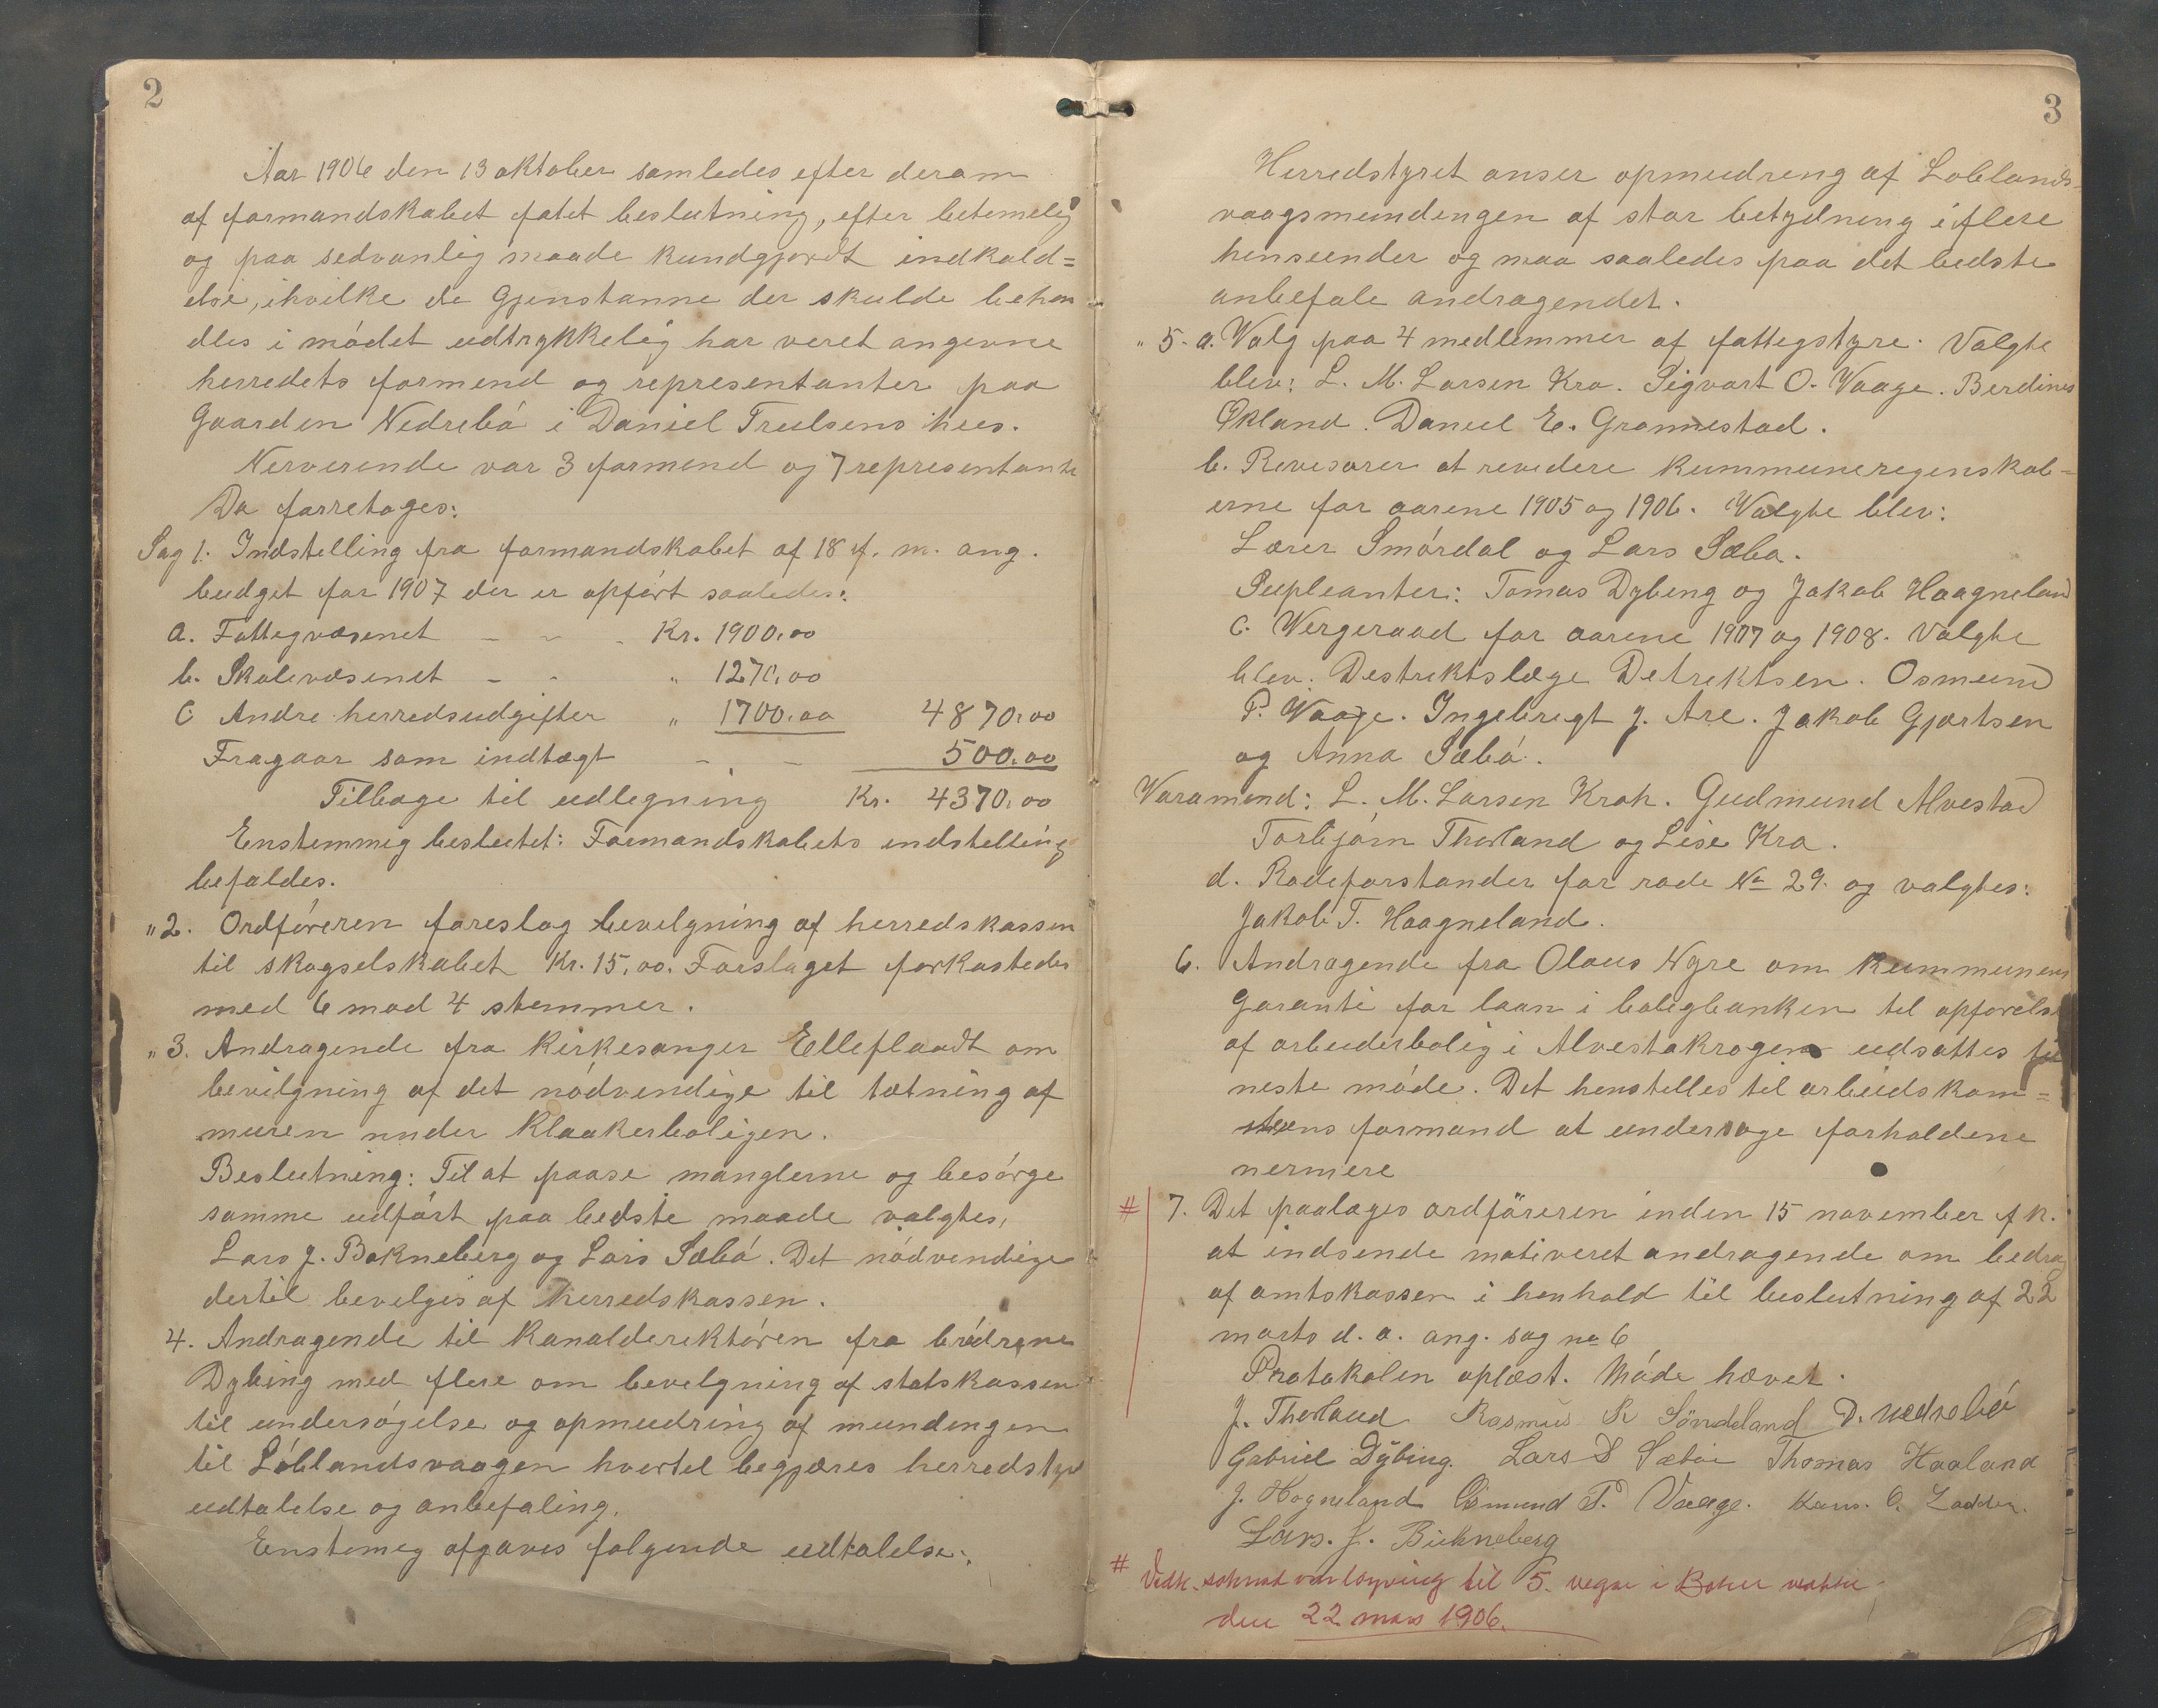 2
Aar 1906 den 13 oktober samledes efter derom
af formandskabet fatet beslutning, efter betemelig
og paa sedvanlig maade kundgjordt indkald=
else, ihvilke de Gjenstanne der skulde behan
dles i mødet udtrykkelig har veret angevne
herredets formend og representanter paa
Gaarden Nedrebó i Daniel Trulsens hus.
Nerverende var 3 formend og 7 representante
Da farretoges:
Sag 1. Indstelling fra formandskabet af 18 f. m. ang.
budget for 1907 der er opført saaledes:
a. Fattegvæsenet - - - Kr. 1900,00
b. Skolevæsenet - - " 1270,00
C Andre herredsudgifter " 1700,00 4870,00
Fragaar som indtægt - - - 500,00
Tilbage til udlegning Kr. 4370,00
Enstemmig beslutet: Formandskabets indstelling
befaldes.
"2. Ordføreren foreslog bevelgning af herredskassen
til skogselskabet Kr. 15,00. Forslaget forkastedes
med 6 mod 4 stemmer.
"3. Andragende fra Kirkesanger Elleflaadt om
bevilgning af det nódvendige til tætning af
muren under Klaakerboligen.
Beslutning: Til at paase manglerne og besórge
samme udført paa bedste maade valgtes,
Lars J. Bokneberg og Lars Sæbó. Det nódvendige
dertil bevelges af Herredskassen.
4. Andragende til Kanalderektóren fra brødrene
Dybing med flere om bevelgning af statskassen
til undersøgelse og opmudring af mundingen
til Lóblandsvaagen hvortel begjæres herredstyr
udtalelse og anbefaling.
Enstemeg afgaves folgende udtalelse:
3
Herredstyret anser opmudreng af Loblands-
vaagsmundengen af stor betydneng i flere
henseender og maa saaledes paa det bedste
anbefale andragendet.
"5. a. Valg paa 4 medlemmer af fattegstyre. Valgte
blev: L. M. Larsen Kro. Sigvart O. Vaage. Berdines
Økland. Daniel E. Gronnestad.
b. Revesorer at revedere Kummuneregenskab-
erne for aarene 1905 og 1906. Valgte blev:
Lærer Smórdal og Lars Sæbø.
Supleanter: Tomas Dybeng og Jakob Haagneland
C. Vergeraad for aarene 1907 og 1908. Valgte
blev: Destriktslæge Detrektsen. Osmund
P. Vaage. Ingebregt J. Are. Jakob Gjertsen
og Anna Sæbó.
Varamend: L. M. Larsen Kroh. Gudmund Alvestad
Torbjórn Thorland og Lise Kro.
d. Rodeforstander for rode No 29. og valgtes:
Jakob T. Haagneland.
6. Andragende fra Olaus Nyre om Kummunens
Garanti for laan i boligbanken til opførelse
af arbeiderbolig i Alvestakrogen udsattes til
neste móde. Det henstelles til arbeidskom-
formand at undersøge forholdene
nermere
# 7. Det paalæges ordføreren inden 15 november f k.
at indsende motiveret andragende om bedrag
af amtskassen i henhold til beslutning af 22
marts d. a. ang. sag no 6
Protokolen oplæst. Móde hævet.
J. Thorland Rasmus R Sóndeland D. Nedrebó
Gabriel Dÿbing. Lars D Sæbøe Thomas Haaland
J. Hogneland Osmund P. Vaage. O.
Lars. J. Bukneberg
# Vedk. til 5. vegar i
den 22 mars 1906.